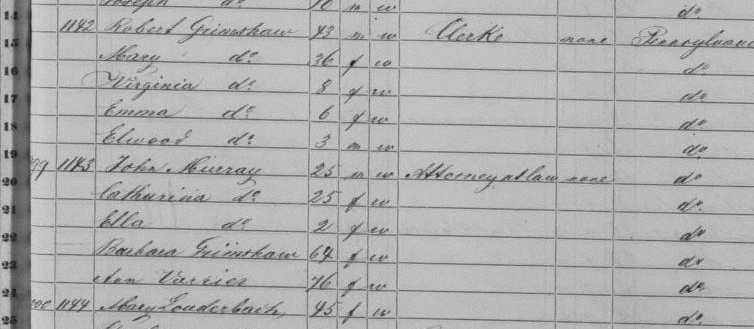 14 Joseph do 10 m w do
15 1142 Robert Grimshaw 43 m w Clerke none Pennsylvania
16 Mary do 36 f w do
17 Virginia do 8 f w do
18 Emma do 6 f w do
19 Elwood do 3 m w do
20 1143 John Murray 25 m w Attorney at law none do
21 Catharina do 25 f w do
22 Ella do 2 f w do
23 Barbara Grimshaw 64 f w do
24 Ann 76 f w do
25 1144 Mary Louderbach 45 f w do